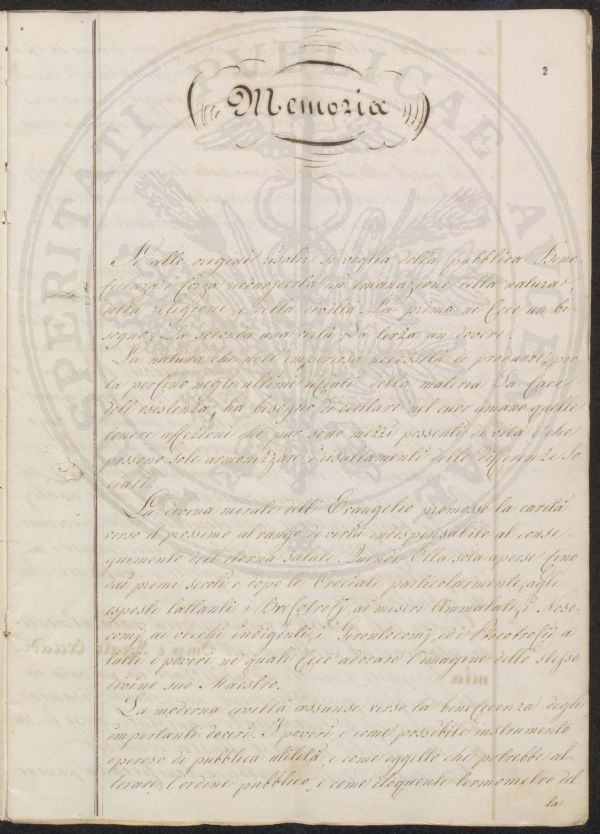 2
Memoria
Se alle origini risalir si voglia della pubblica Bene
ficenza è forza riconoscerla un emanazione della natura
della religione e della civiltà. La prima ne fece un bi
sogno, La seconda una virtù La terza un dovere.
La natura che nell' imperiosa necessità di produrre, por
ta perfino negli ultimi rifiuti della materia La face
dell' esistenza, ha bisogno di eccitare nel cuor umano quelle
tenere affezioni che pur sono mezzi possenti di vita e che
possono sole armonizzare i risultamenti delle differenze So
ciali.
La divina morale dell' Evangelio promosse la carità
verso il prossimo al rango di virtù indispensabile al conse
guimento dell' eterna Salute. Quindi Ella sola aperse fino
dai primi secoli e dopo le Crociate particolarmente, agli
esposti lattanti i Brefotrofj ai miseri Ammalati, i Noso
comj ai vecchi indigenti, i Gerontocomj, ed i Ptocotrofii, a
tutti i poveri ne' quali fece adorare l'imagine dello stesso
divino suo Maestro.
La moderna civiltà assunse verso la beneficenza degli
importanti doveri. I poveri e come possibile instrumento
operoso di pubblica utilità, e come oggetto che potrebbe al
terare l'ordine pubblico, e come eloquente termometro del
la
SPERITATI PUBLICAE